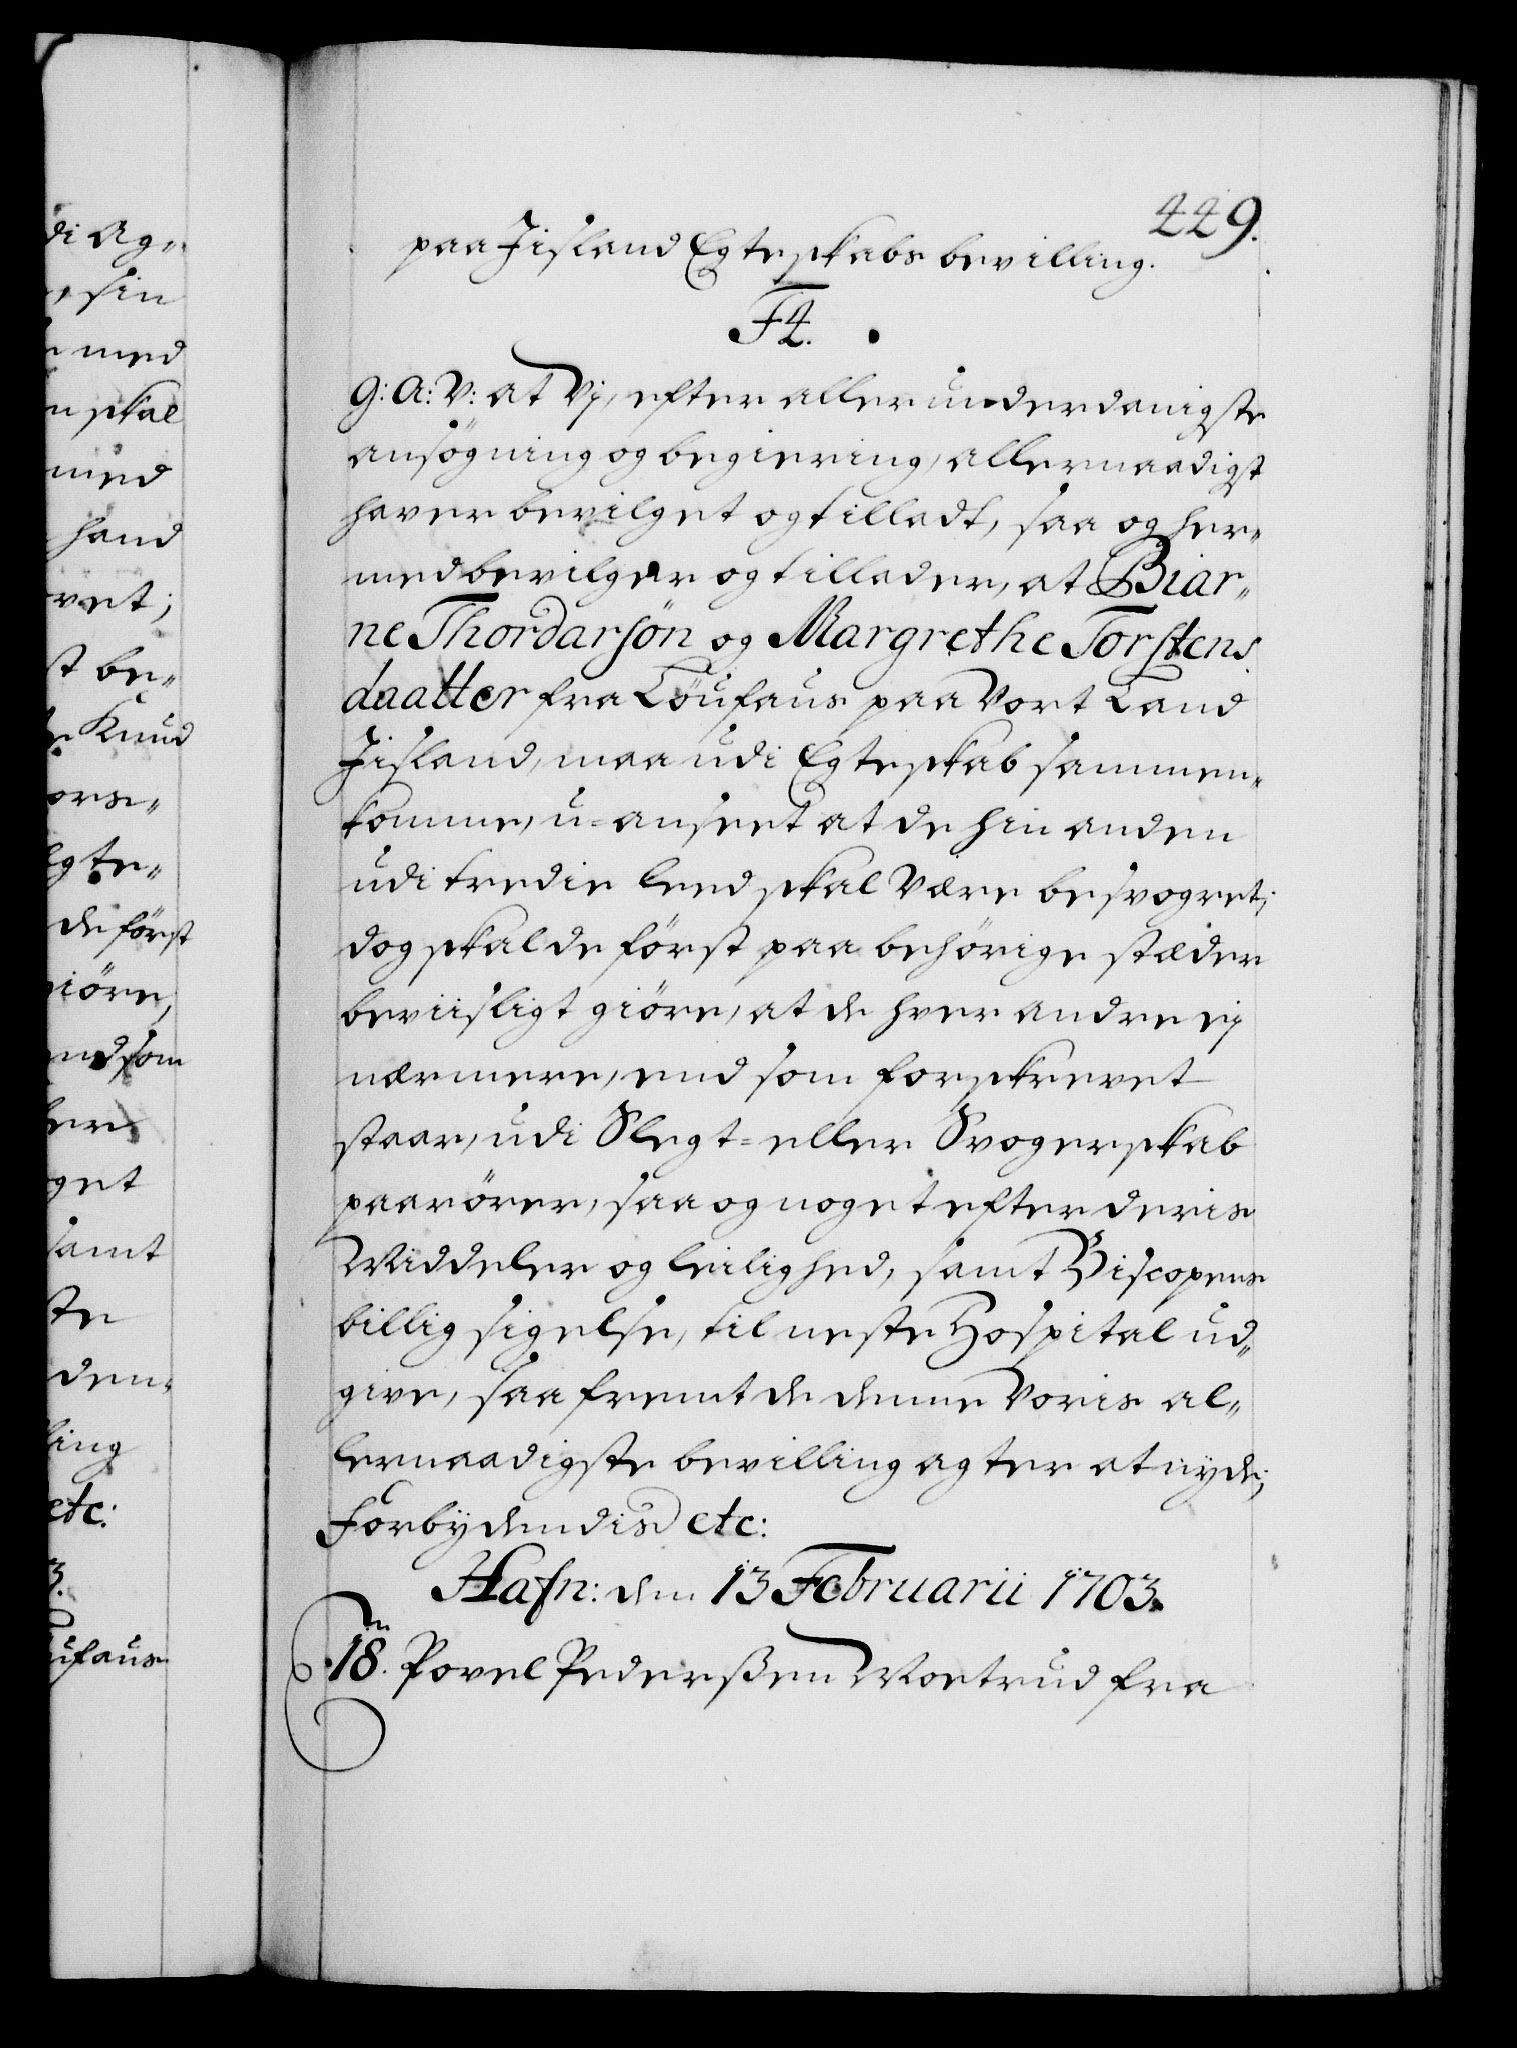 449.
paa Jisland Egteskabs bevilling.
F4.
G: A: V: at Vj, efter allerunderdanigste
ansögning og begiering, allernaadigst
haver bevilget og tilladt, saa og her„
med bevilger og tillader, at Biar„
ne Thordarsön og Margrethe Torstens
daatter fra Löufaus paa Vort Land
Jisland, maa udi Egteskab sammen„
komme, u=anseet at de hin anden
udi tredie leed skal være besvogret;
dog skal de först paa behörige stæder
beviisligt giöre, at de hver andre ej
nærmere, end som forskrevet
staar, udi Slegt= eller Svogerskab
paarörer, saa og noget efter deris
Middeler og leilighed, samt Biscopens
billig sigelse, til neste Hospital ud„
give, saa fremt de denne Voris al„
lernaadigste bevilling agter at nyde;
Forbydendis etc:
Hafn: den 13 Februarii 1703.
18. Povel Pederßen fra
di Ag„
sin
med
skal
med
hand
vet;
st be„
Knud
ors„
gte„
de först
giöre,
end som
ler
get
samt
ste
den„
ling
etc:
3.
ufaus